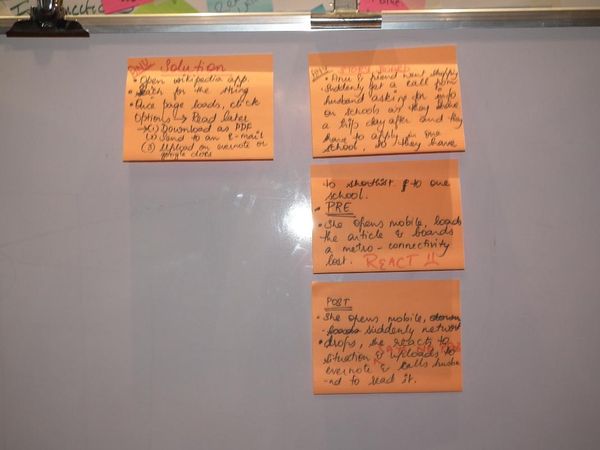 Solution
• Open wikipedia app.
• Search for the thing
• Once page loads, click
Options → Read later
→ (1) Download as PDF
(2) Send to an E-mail
(3) Upload on evernote or
google docs
& friend went
• Suddenly get a call from
husband asking for info
on schools as they have
a trip day after and they
have to apply in one
school. So they have
to shortlist to one
school.
• PRE
• She opens mobile, loads
the article & boards
a metro - connectivity
lost. REACT !!
POST
• She opens mobile,
suddenly network
• drops, she reacts to
situation & uploads to
evernote & calls husba
-nd to read it.